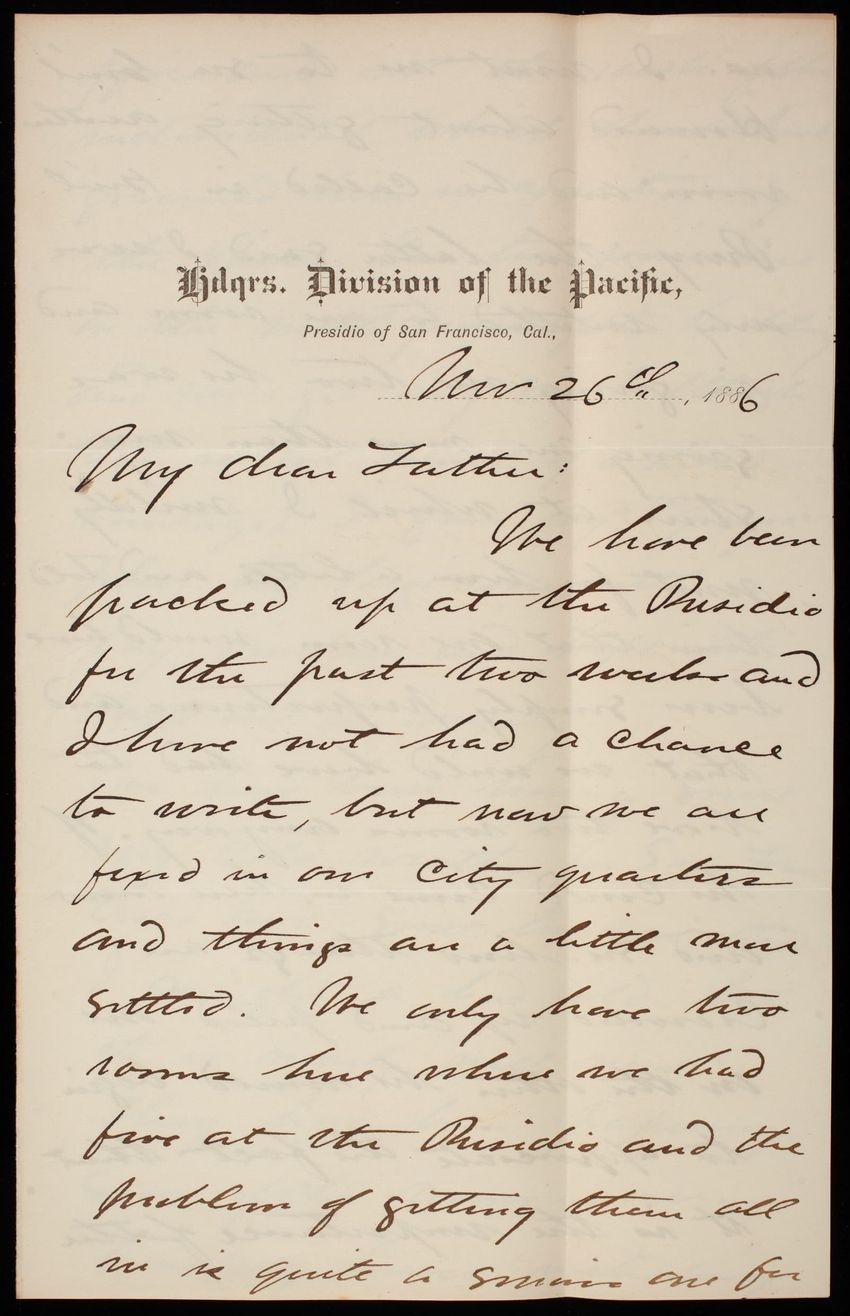 Hdqrs. Division of the Pacific,
Presidio of San Francisco, Cal.,
Nov 26th, 1886
My dear Father:
We have been
packed up at the Presidio
for the past two weeks and
I have not had a chance
to write, but now we are
fixed in our City quarters
and things are a little more
settled. We only have two
rooms here where we had
five at the Presidio and the
problem of getting them all
in is quite a serious one for